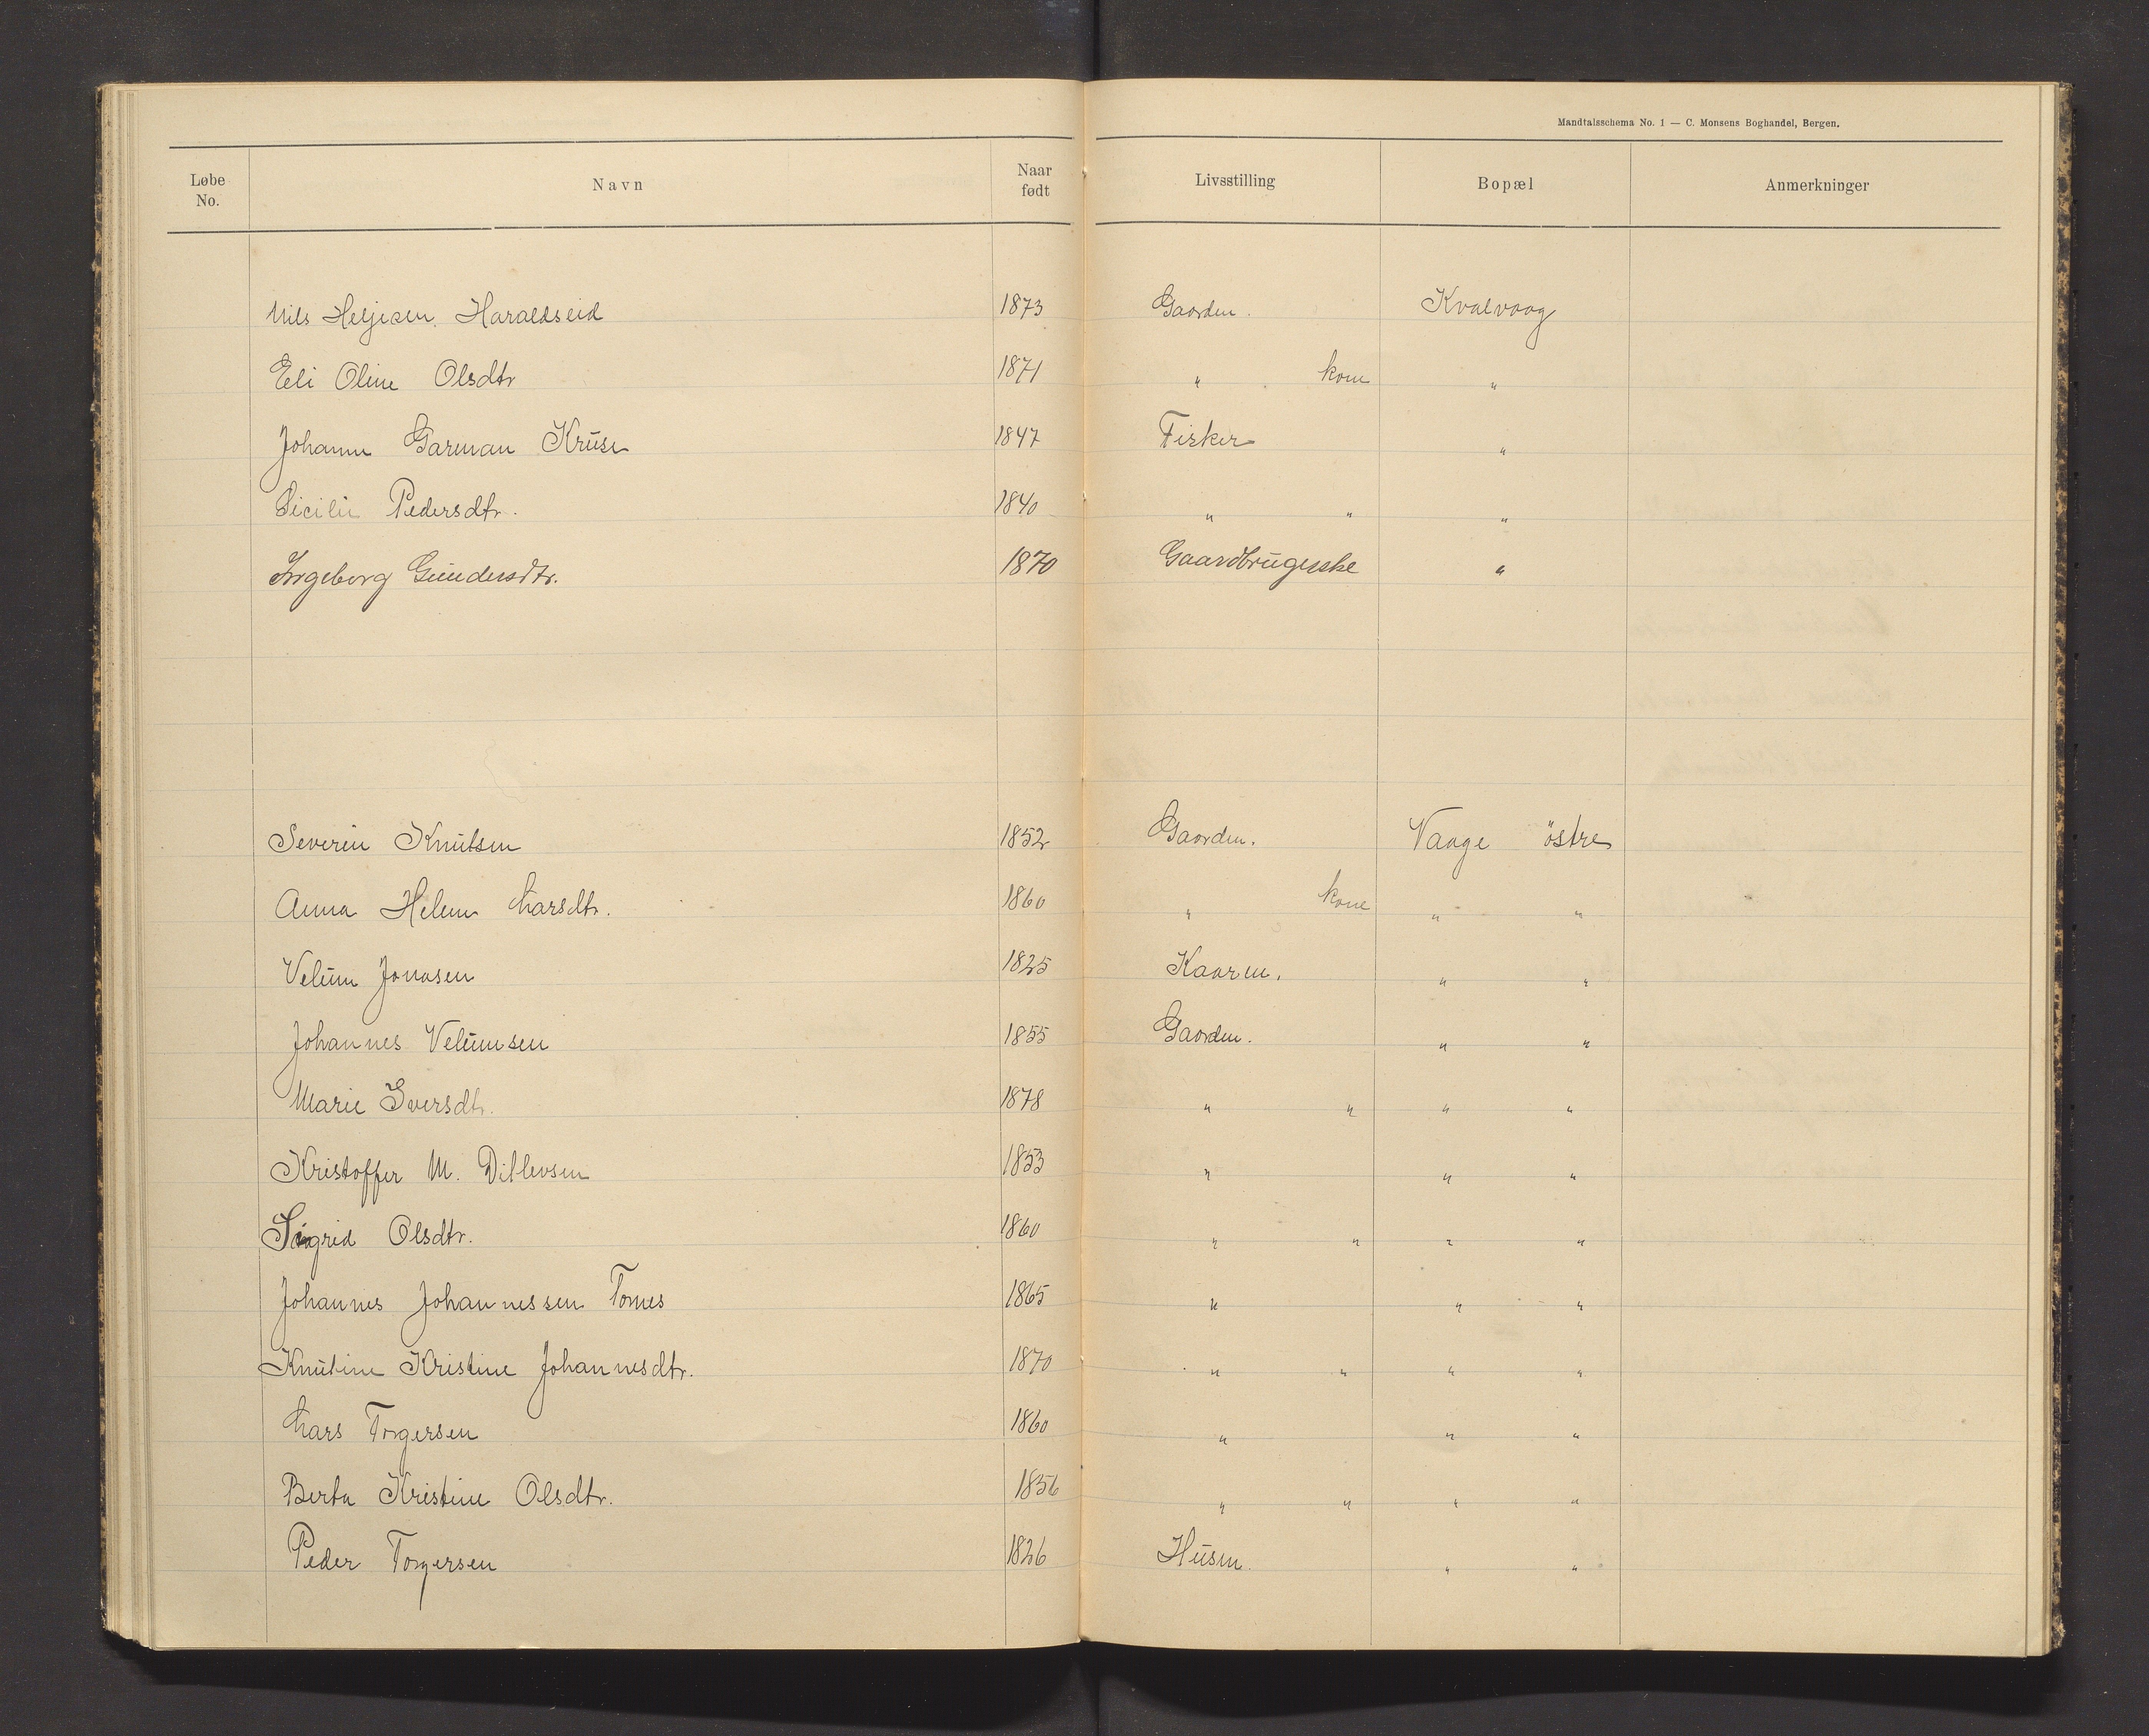 Mandtalsschema No. 1 — C. Monsens Boghandel, Bergen.
Løbe No. Navn Naar født Livsstilling Bopæl Anmerkninger
Nils Heljesen Haraldseid 1873 Gaarden. Kvalvaag
Eli Oline Olsdtr 1871 " kone "
Johann Garman Kruse 1847 Fisker "
Sicilie Pedersdtr. 1840 " " "
Ingeborg Gundersdtr. 1870 Gaardbrugerske "
Severin Knutsen 1852 Gaarden. Vaage östre
Anna Helene Larsdtr. 1860 " kone " "
Velum Jonasen 1825 Kaarm. " "
Johannes Velumsen 1855 Gaarden. " "
Marie Iversdtr. 1878 " " " "
Kristoffer M. Ditlevsen 1853 " " "
Sigrid Olsdtr. 1860 " " " "
Johannes Johannessen Tornes 1865 " " "
Knutine Kristine Johannesdtr. 1870 " " " "
Lars Torgersen 1860 " " "
Berta Kristine Olsdtr. 1856 " " " "
Peder Torgersen 1826 Husm. " "